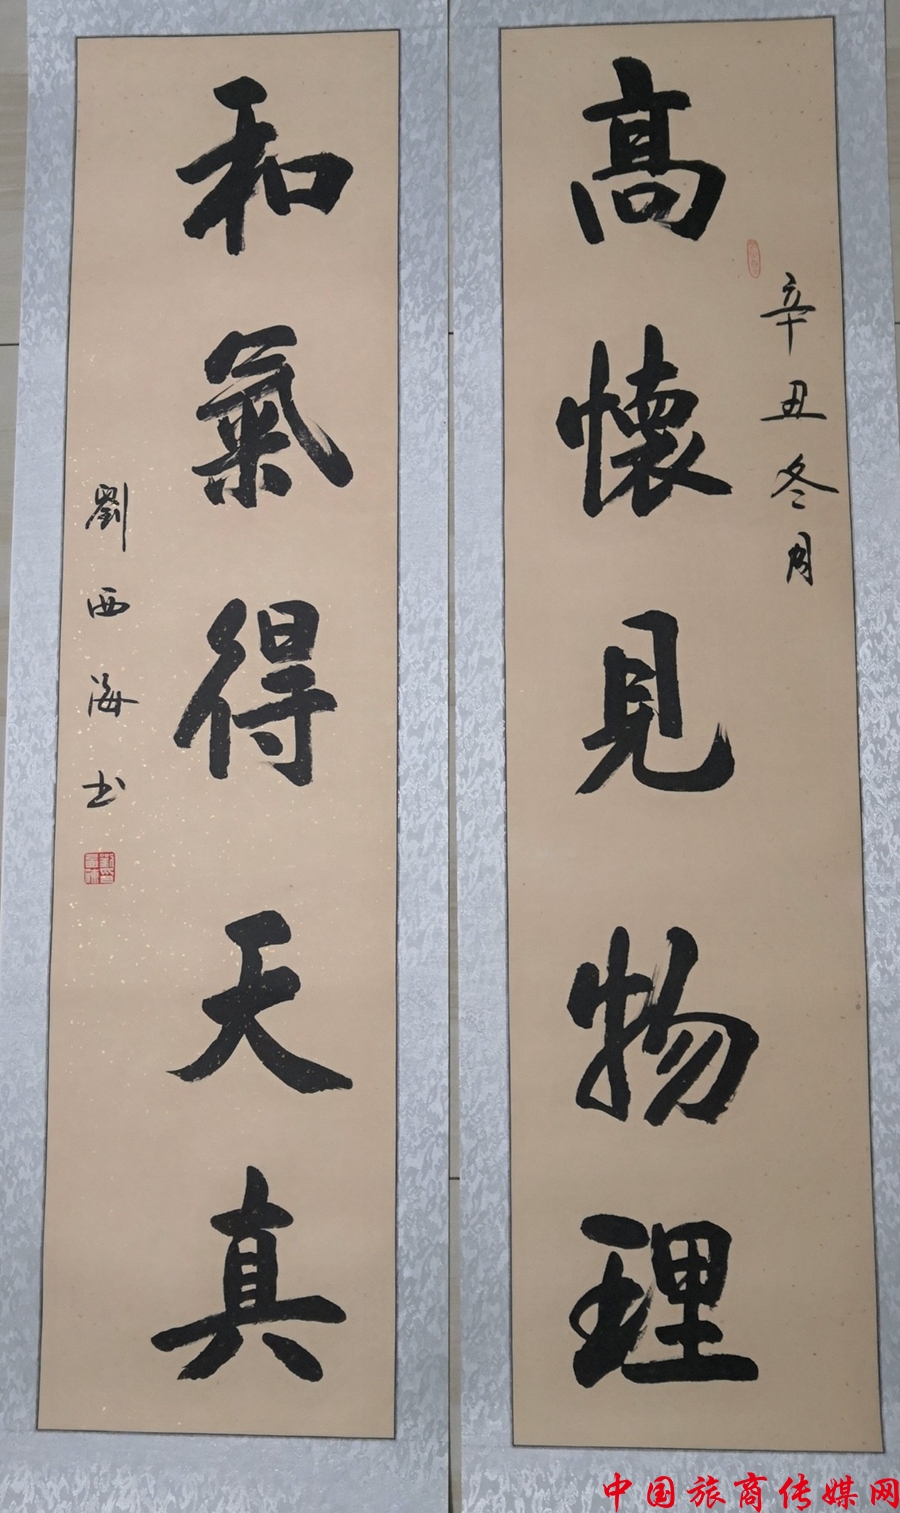 辛丑冬月
高懷見物理
和氣得天真
劉西海书
中国旅商传媒网